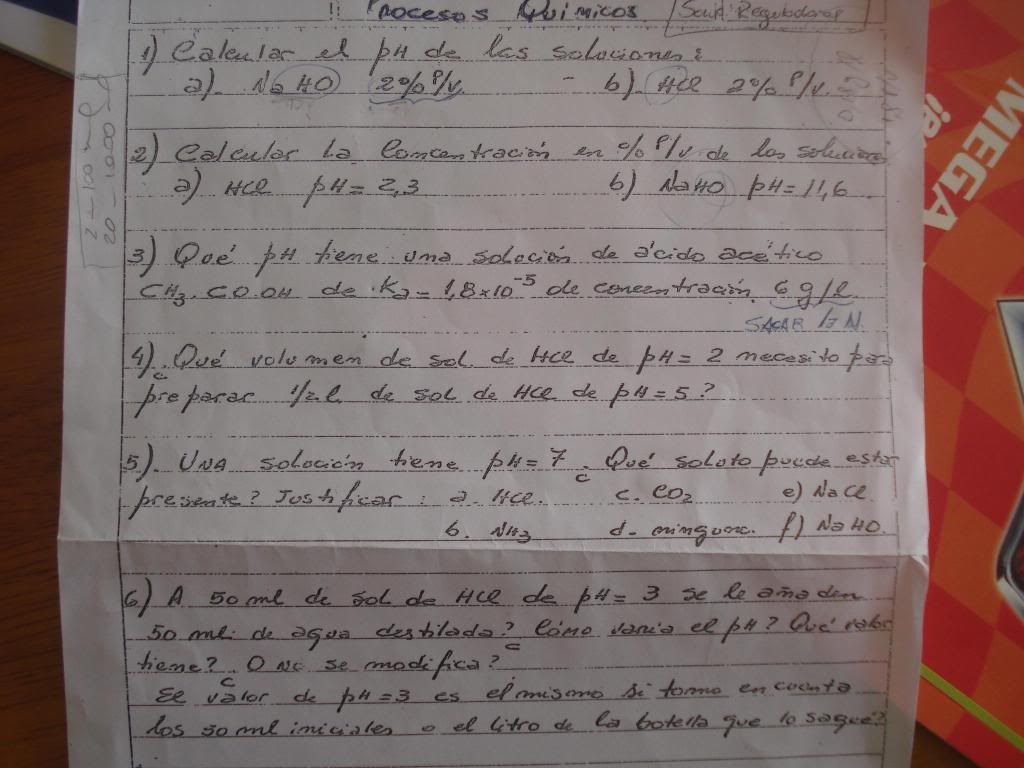 Procesos Químicos
1) Calcular el pH de las soluciones:
a). NaHO 2% P/v. - b). HCl 2% P/v.
2) Calcular la Concentración en % P/v de las
a) HCl pH = 2,3 b) NaHO pH = 11,6
3) Qué pH tiene una solución de ácido acético
CH3.CO.OH de Ka = 1,8 x 10⁻⁵ de concentración 6 g/l.
SACAR la N
4). ¿Qué volumen de sol de HCl de pH = 2 necesito para
preparar 1/2 l. de sol de HCl de pH = 5?
5). UNA solución tiene pH = 7. ¿Qué soluto puede estar
presente? Justificar: a. HCl. c. CO2 e) NaCl
b. NH3 d. ninguno. f) NaHO.
6) A 50 ml de sol de HCl de pH = 3 se le añaden
50 ml. de agua destilada? ¿Cómo varia el pH? Qué valor
tiene? ¿O no se modifica?
El valor de pH = 3 es el mismo si tomo en cuenta
los 50 ml iniciales o el litro de la botella que lo saqué?
2 — 100 ml
20 — 1000
MEGA